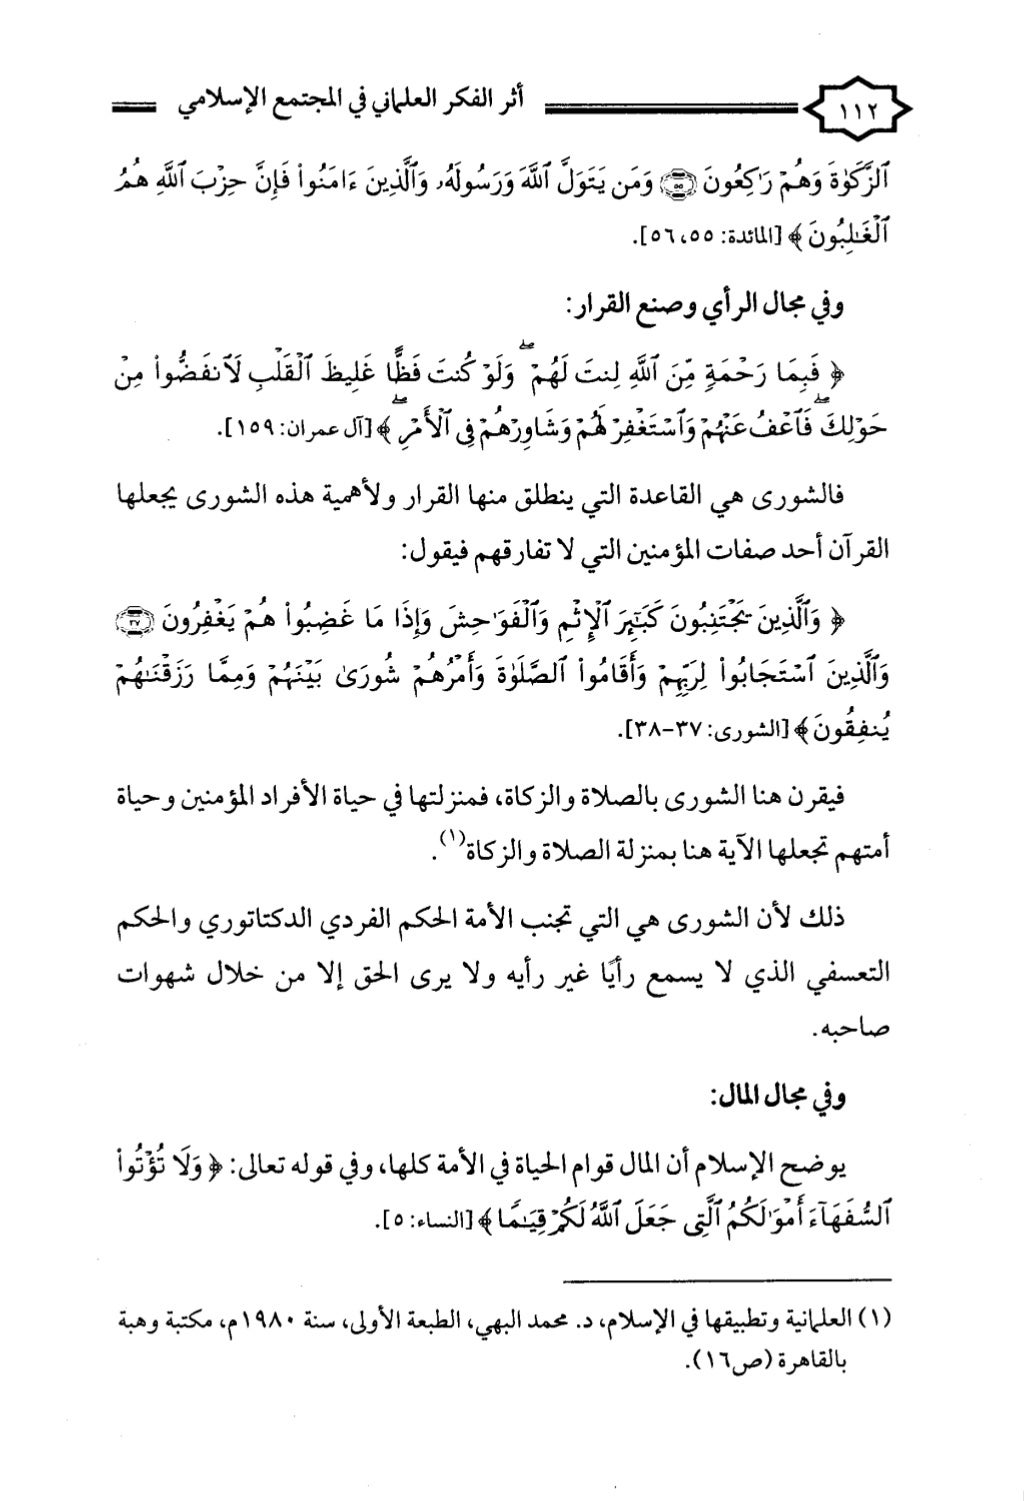 ١١٢
أثر الفكر العلماني في المجتمع الإسلامي
ٱلزَّكَوٰةَ وَهُمۡ رَٰكِعُونَ ۝٥٥ وَمَن يَتَوَلَّ ٱللَّهَ وَرَسُولَهُۥ وَٱلَّذِينَ ءَامَنُواْ فَإِنَّ حِزۡبَ ٱللَّهِ هُمُ
ٱلۡغَٰلِبُونَ ﴾ [المائدة: ٥٥، ٥٦].
وفي مجال الرأي وصنع القرار:
﴿ فَبِمَا رَحۡمَةٖ مِّنَ ٱللَّهِ لِنتَ لَهُمۡۖ وَلَوۡ كُنتَ فَظًّا غَلِيظَ ٱلۡقَلۡبِ لَٱنفَضُّواْ مِنۡ
حَوۡلِكَۖ فَٱعۡفُ عَنۡهُمۡ وَٱسۡتَغۡفِرۡ لَهُمۡ وَشَاوِرۡهُمۡ فِي ٱلۡأَمۡرِۖ ﴾ [آل عمران: ١٥٩].
فالشورى هي القاعدة التي ينطلق منها القرار ولأهمية هذه الشورى يجعلها
القرآن أحد صفات المؤمنين التي لا تفارقهم فيقول:
﴿ وَٱلَّذِينَ يَجۡتَنِبُونَ كَبَٰٓئِرَ ٱلۡإِثۡمِ وَٱلۡفَوَٰحِشَ وَإِذَا مَا غَضِبُواْ هُمۡ يَغۡفِرُونَ ۝٣٧
وَٱلَّذِينَ ٱسۡتَجَابُواْ لِرَبِّهِمۡ وَأَقَامُواْ ٱلصَّلَوٰةَ وَأَمۡرُهُمۡ شُورَىٰ بَيۡنَهُمۡ وَمِمَّا رَزَقۡنَٰهُمۡ
يُنفِقُونَ ﴾ [الشورى: ٣٧-٣٨].
فيقرن هنا الشورى بالصلاة والزكاة، فمنزلتها في حياة الأفراد المؤمنين وحياة
أمتهم تجعلها الآية هنا بمنزلة الصلاة والزكاة(١).
ذلك لأن الشورى هي التي تجنب الأمة الحكم الفردي الدكتاتوري والحكم
التعسفي الذي لا يسمع رأيًا غير رأيه ولا يرى الحق إلا من خلال شهوات
صاحبه.
وفي مجال المال:
يوضح الإسلام أن المال قوام الحياة في الأمة كلها، وفي قوله تعالى: ﴿ وَلَا تُؤۡتُواْ
ٱلسُّفَهَآءَ أَمۡوَٰلَكُمُ ٱلَّتِي جَعَلَ ٱللَّهُ لَكُمۡ قِيَٰمٗا ﴾ [النساء: ٥].
(١) العلمانية وتطبيقها في الإسلام، د. محمد البهي، الطبعة الأولى، سنة ١٩٨٠م، مكتبة وهبة
بالقاهرة (ص١٦).